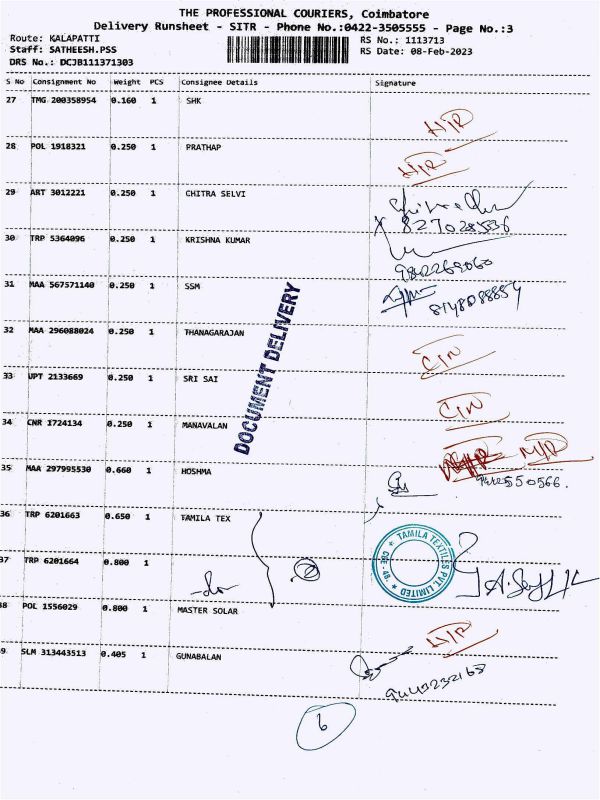 THE PROFESSIONAL COURIERS, Coimbatore
Delivery Runsheet - SITR - Phone No.:0422-3505555 - Page No.:3
Route: KALAPATTI
RS No.: 1113713
Staff: SATHEESH.PSS
RS Date: 08-Feb-2023
DRS No.: DCJB111371303
S No Consignment No Weight PCS Consignee Details Signature
27 TMG 200358954 0.160 1 SHK
N/R
28 POL 1918321 0.250 1 PRATHAP
N/R
29 ART 3012221 0.250 1 CHITRA SELVI
30 TRP 5364096 0.250 1 KRISHNA KUMAR
31 MAA 567571140 0.250 1 SSM
32 MAA 296088024 0.250 1 THANAGARAJAN
C/N
33 UPT 2133669 0.250 1 SRI SAI
C/N
34 CNR 1724134 0.250 1 MANAVALAN
N/R
35 MAA 297995530 0.660 1 HOSHMA
36 TRP 6201663 0.650 1 TAMILA TEX
37 TRP 6201664 0.800 1
-do-
2
38 POL 1556029 0.800 1 MASTER SOLAR
N/R
39 SLM 313443513 0.405 1 GUNABALAN
9443232165
6
DOCUMENT DELIVERY
TAMILA TEXTILES PVT. LIMITED
CBE-48.